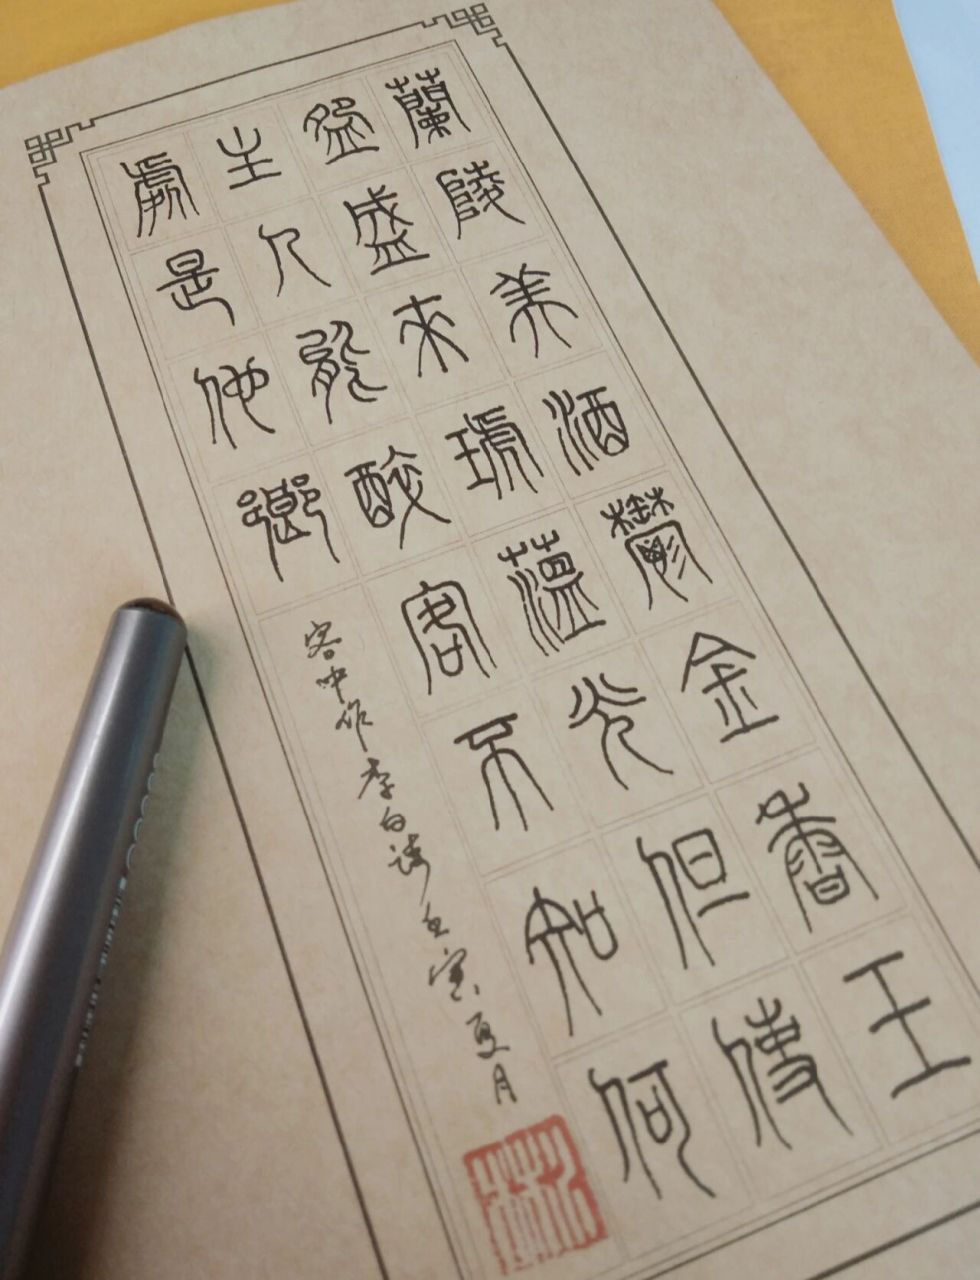 蘭陵美酒鬱金香玉
盌盛來琥薀光但使
主人能醉客不知何
處是他鄉
客中作 李白詩 壬寅夏月